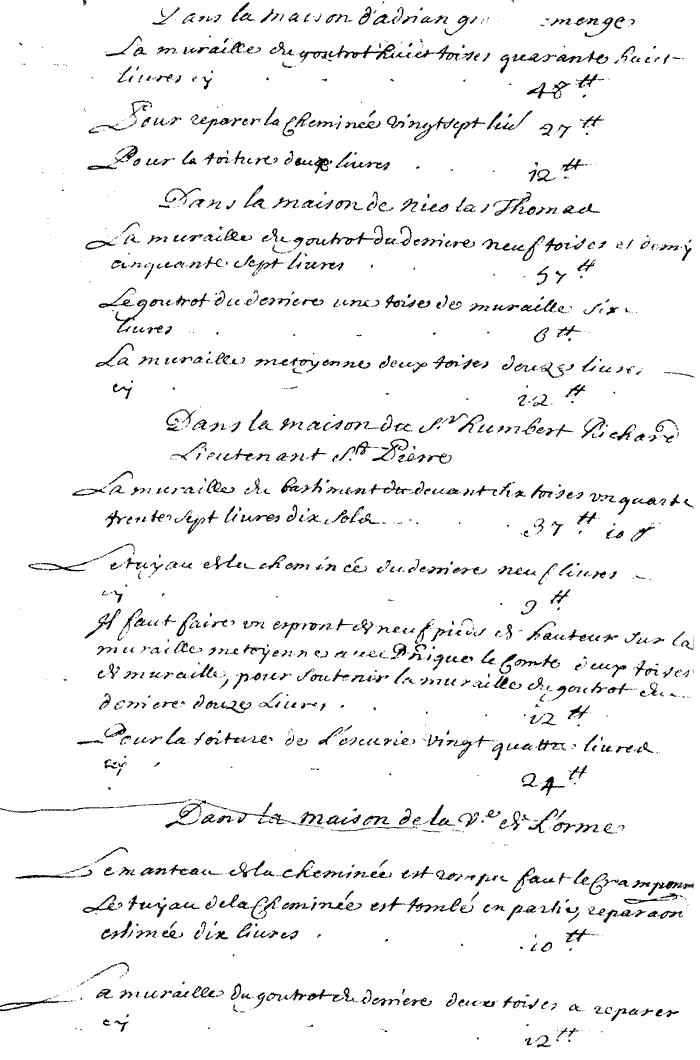 Dans la maison d'adrian menge
La muraille du goutrot huict toises quarante huict
livres cy 48 tt
Pour reparer la cheminée vingt sept liv 27 tt
Pour la toiture douze livres 12 tt
Dans la maison de nicolas Thomas
La muraille du goutrot du derriere neuf toises et demy
cinquante sept livres 57 tt
Le goutrot du derriere une toise de muraille six
livres 6 tt
La muraille metoyenne deux toises douze livres
cy 12 tt
Dans la maison du Sr humbert Richard
Lieutenant St Pierre
La muraille du bastiment du devant six toises un quart
trente sept livres dix sols 37 tt 10 s
Le tuyau de la cheminée du derriere neuf livres
cy 9 tt
Il faut faire un de neuf pieds de hauteur sur la
muraille metoyenne avec Dnique le Comte deux toises
de muraille, pour soutenir la muraille du goutrot du
derriere douze Livres 12 tt
Pour la toiture de L'escurie vingt quattre livres
cy 24 tt
Dans la maison de la Ve de L'orme
Le manteau de la cheminée est rompu faut le Cramponer
Le tuyau de la Cheminée est tombé en partie, reparaon
estimée dix livres 10 tt
La muraille du goutrot du derriere deux toises a reparer
cy 12 tt